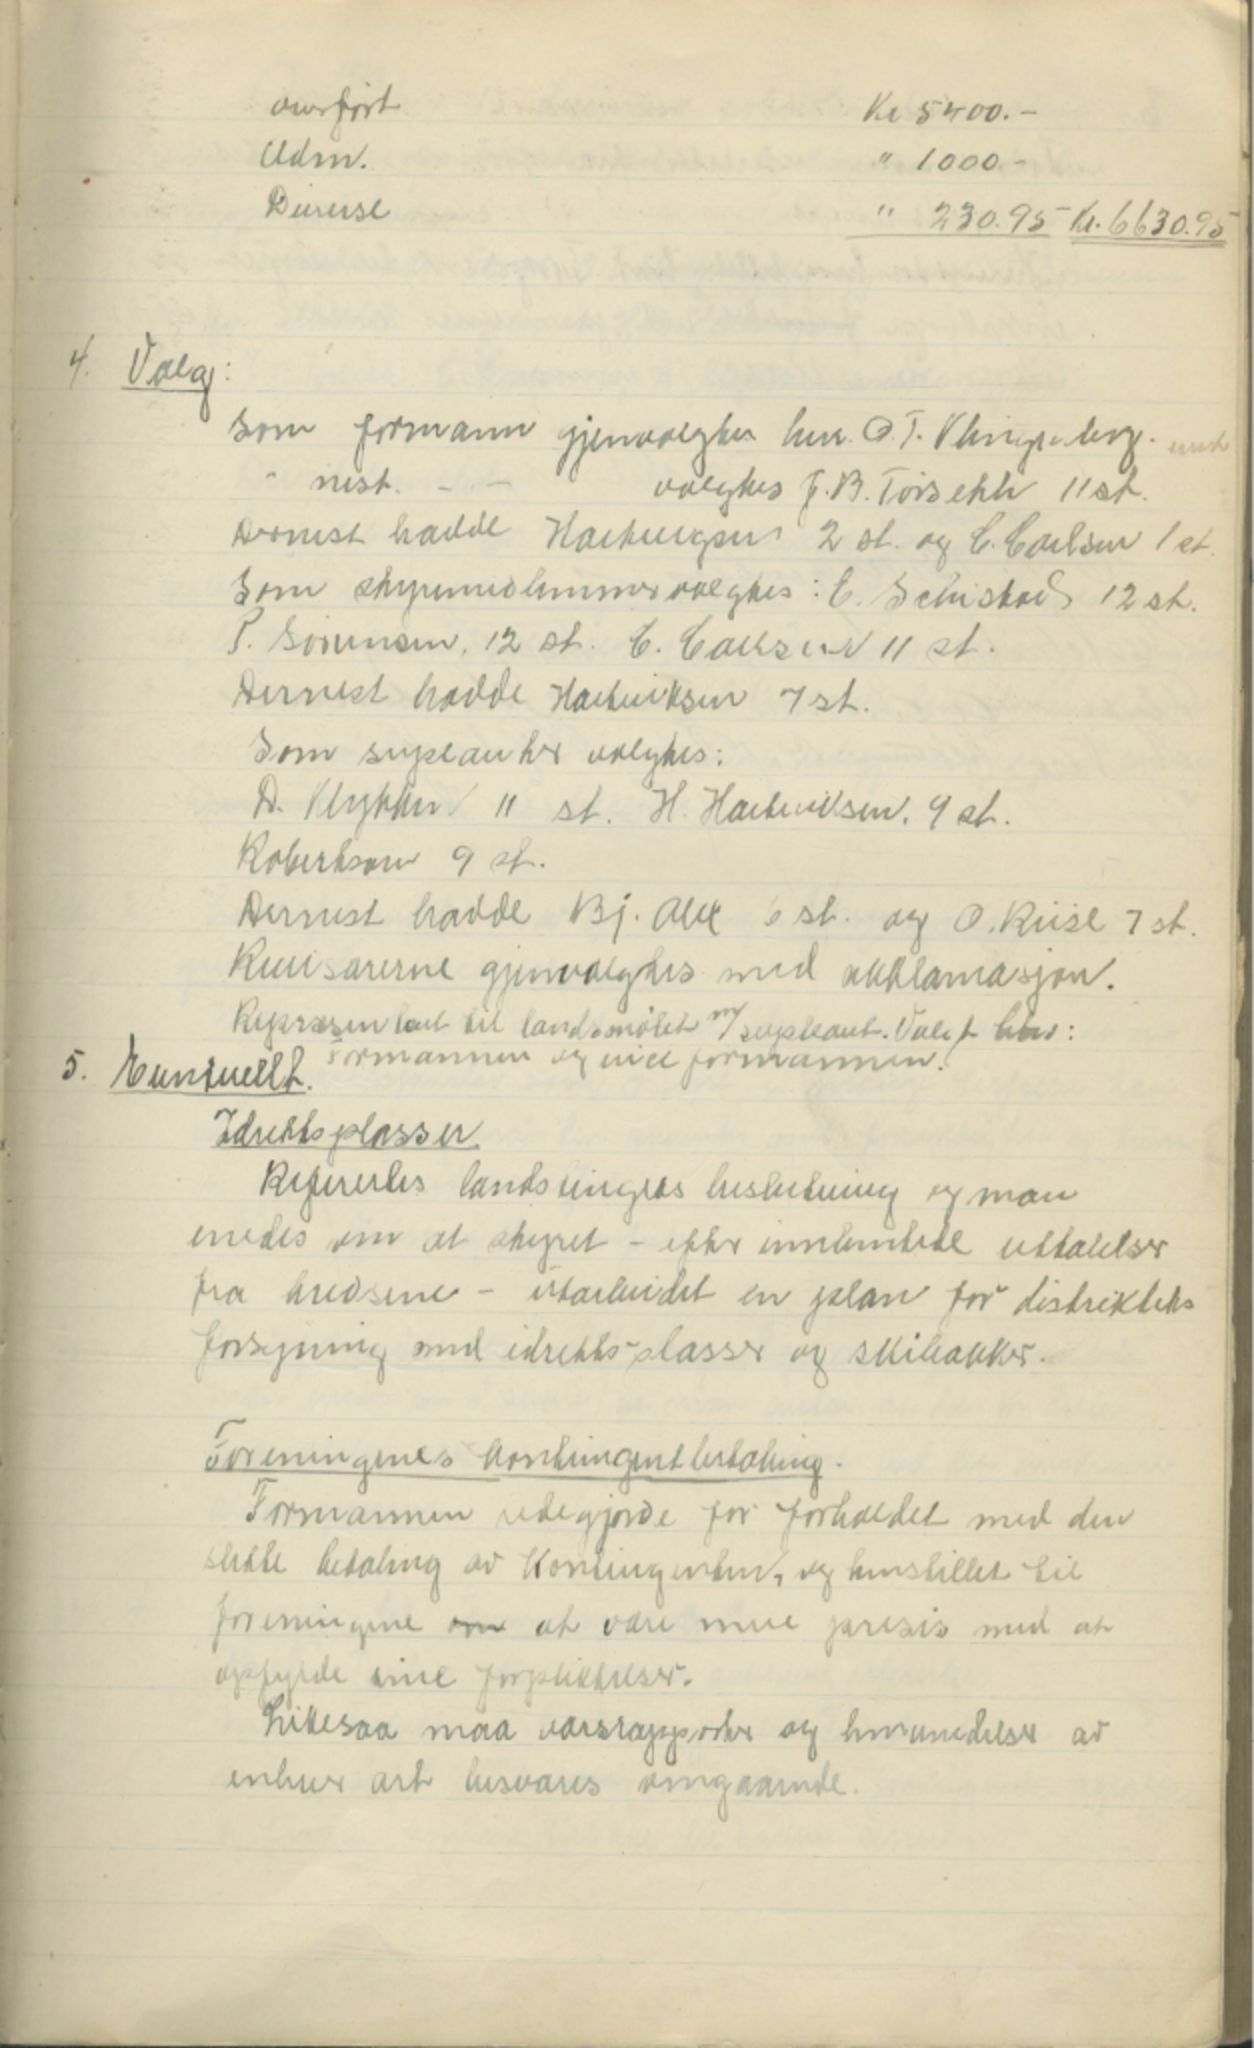 overført Kr 5400.-
Adm. " 1000.-
Diverse " 230.95 Kr. 6630.95
4. Valg:
Som formann gjenvalgtes herr. O.T. Klingenberg.
" nest. - - valgtes J.B. Torseth 11 st.
Dernest hadde Hartvigsen 2 st. og C. Carlsen 1 st.
Som styremedlemmer valgtes: E. Schistad 12 st.
P. Sørensen, 12 st. C. Carlsen 11 st.
Dernest hadde Hartviksen 7 st.
Som supleanter valgtes:
D. 11 st. H. Hartviksen. 9 st.
Robertsen 9 st.
Dernest hadde Bj. 6 st. og O. Riise 7 st.
Revisorerne gjenvalgtes med akklamasjon.
Representant til landsmøtet m/supleant. Valgt blev:
Formannen og viceformannen.
5. Eventuellt.
Idrettsplasser
Refereres landstingets beslutning og man
enedes om at styret - efter innhentede uttalelser
fra kredsene - utarbeidet en plan for distriktets
forsyning med idrettsplasser og skibakker.
Foreningenes kontingentbetaling.
Formannen redegjorde for forholdet med den
slette betaling av kontingenten, og henstillet til
foreningene om at være mere presis med at
opfylde sine forpliktelser.
Likesaa maa årsrapporter og henvendelser av
enhver art besvares omgaaende.